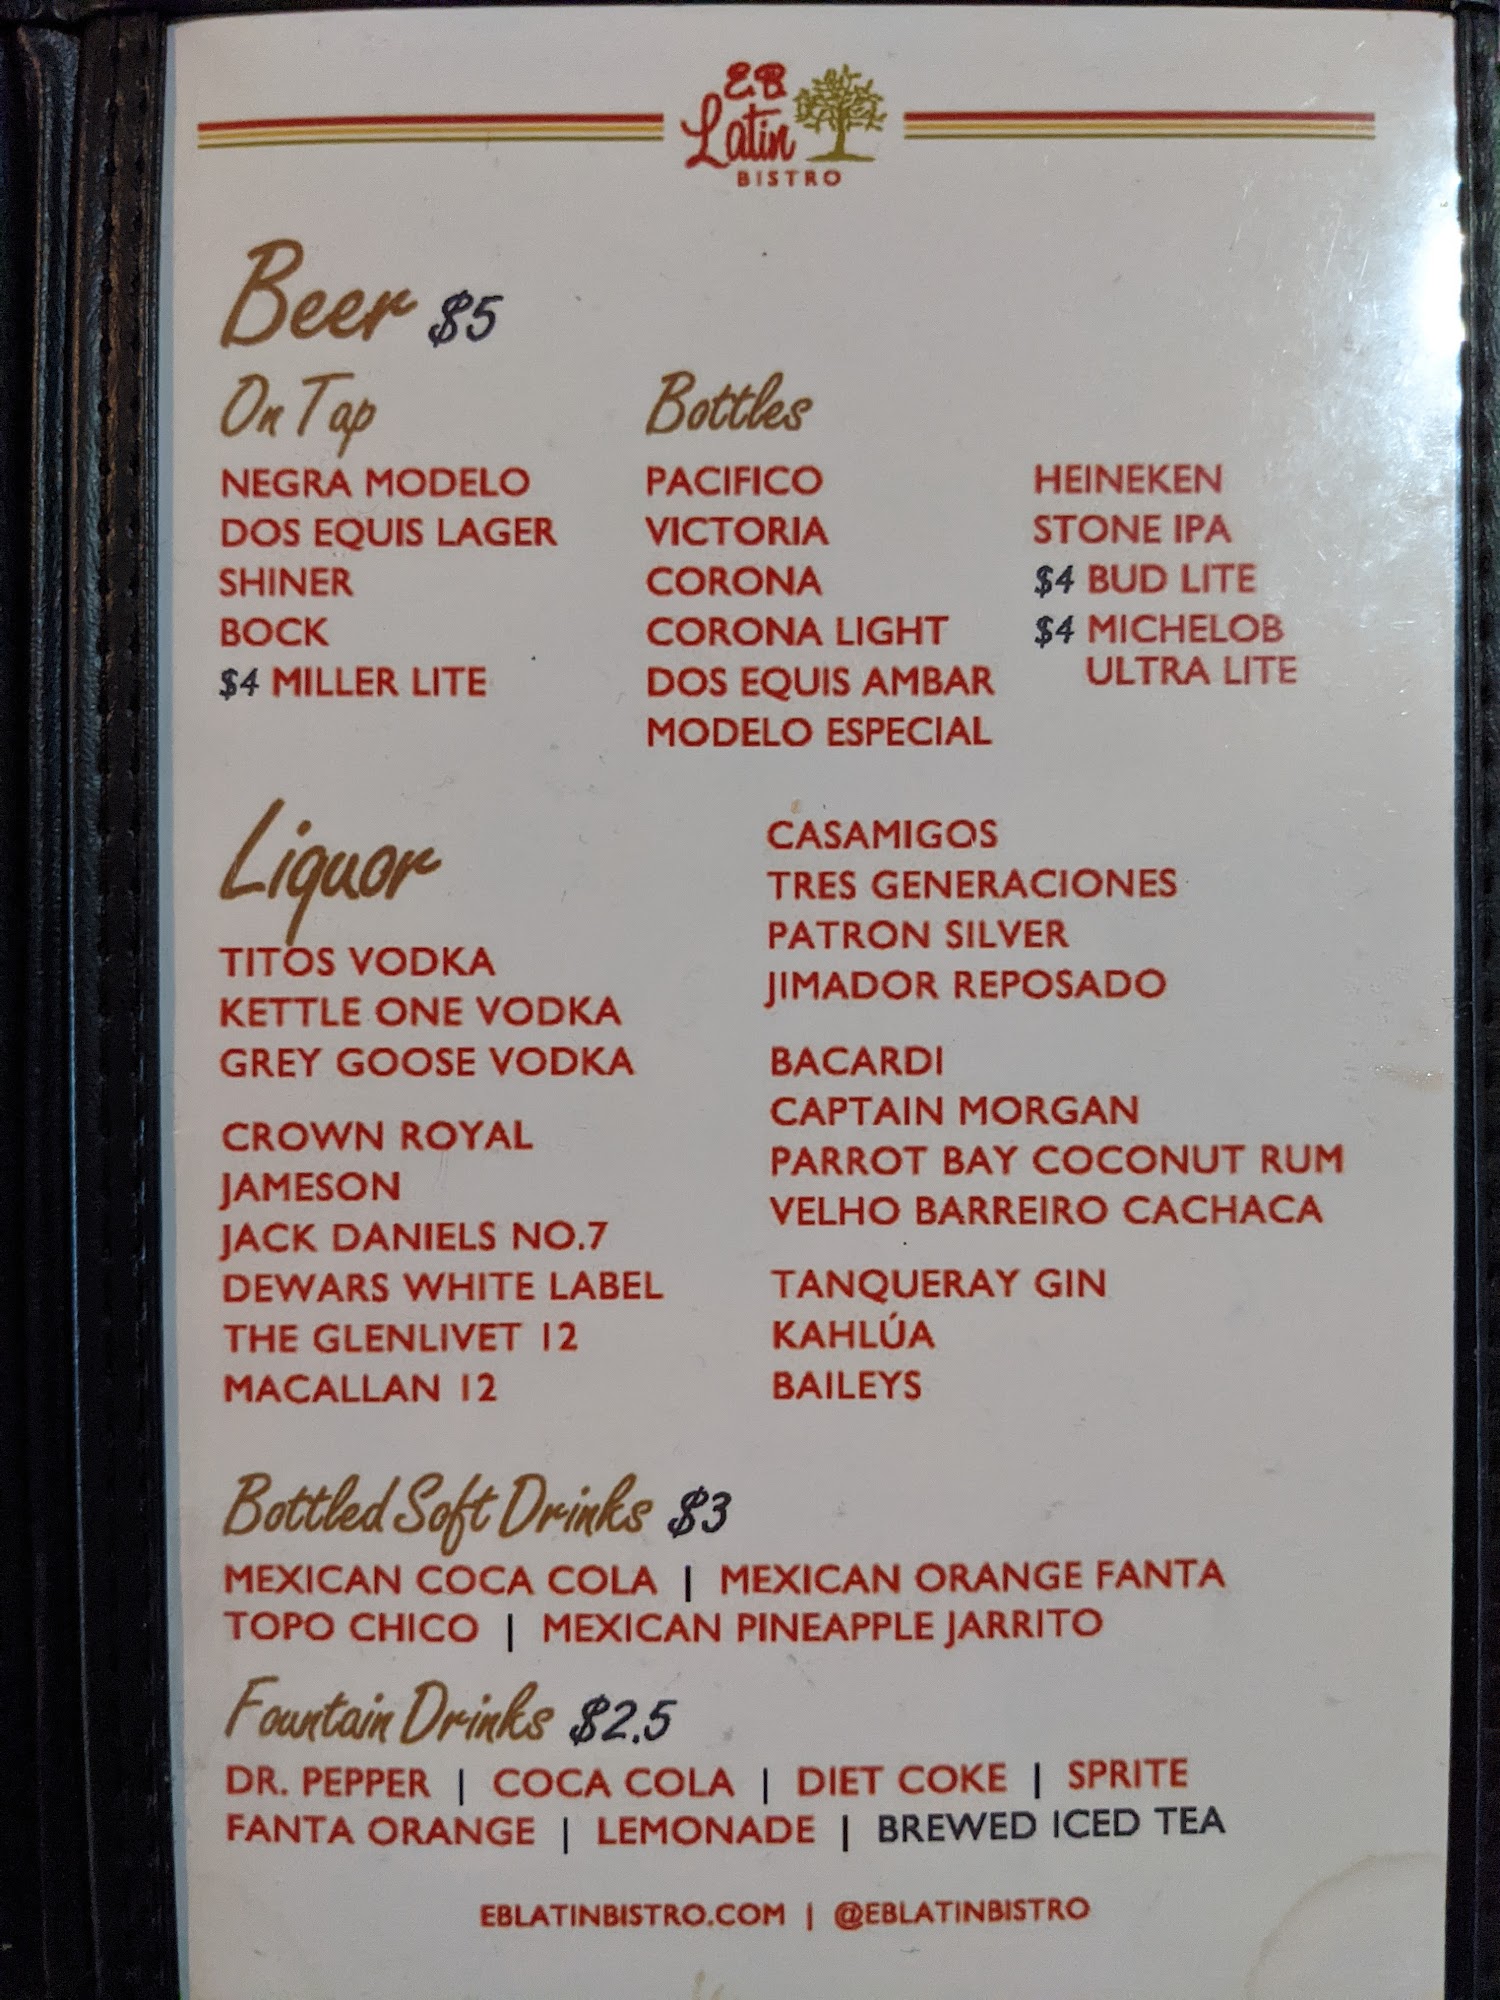 EB
Latin
BISTRO
Beer $5
On Tap
NEGRA MODELO
DOS EQUIS LAGER
SHINER
BOCK
$4 MILLER LITE
Bottles
PACIFICO
VICTORIA
CORONA
CORONA LIGHT
DOS EQUIS AMBAR
MODELO ESPECIAL
HEINEKEN
STONE IPA
$4 BUD LITE
$4 MICHELOB
ULTRA LITE
Liquor
TITOS VODKA
KETTLE ONE VODKA
GREY GOOSE VODKA
CROWN ROYAL
JAMESON
JACK DANIELS NO.7
DEWARS WHITE LABEL
THE GLENLIVET 12
MACALLAN 12
CASAMIGOS
TRES GENERACIONES
PATRON SILVER
JIMADOR REPOSADO
BACARDI
CAPTAIN MORGAN
PARROT BAY COCONUT RUM
VELHO BARREIRO CACHACA
TANQUERAY GIN
KAHLÚA
BAILEYS
Bottled Soft Drinks $3
MEXICAN COCA COLA | MEXICAN ORANGE FANTA
TOPO CHICO | MEXICAN PINEAPPLE JARRITO
Fountain Drinks $2.5
DR. PEPPER | COCA COLA | DIET COKE | SPRITE
FANTA ORANGE | LEMONADE | BREWED ICED TEA
EBLATINBISTRO.COM | @EBLATINBISTRO